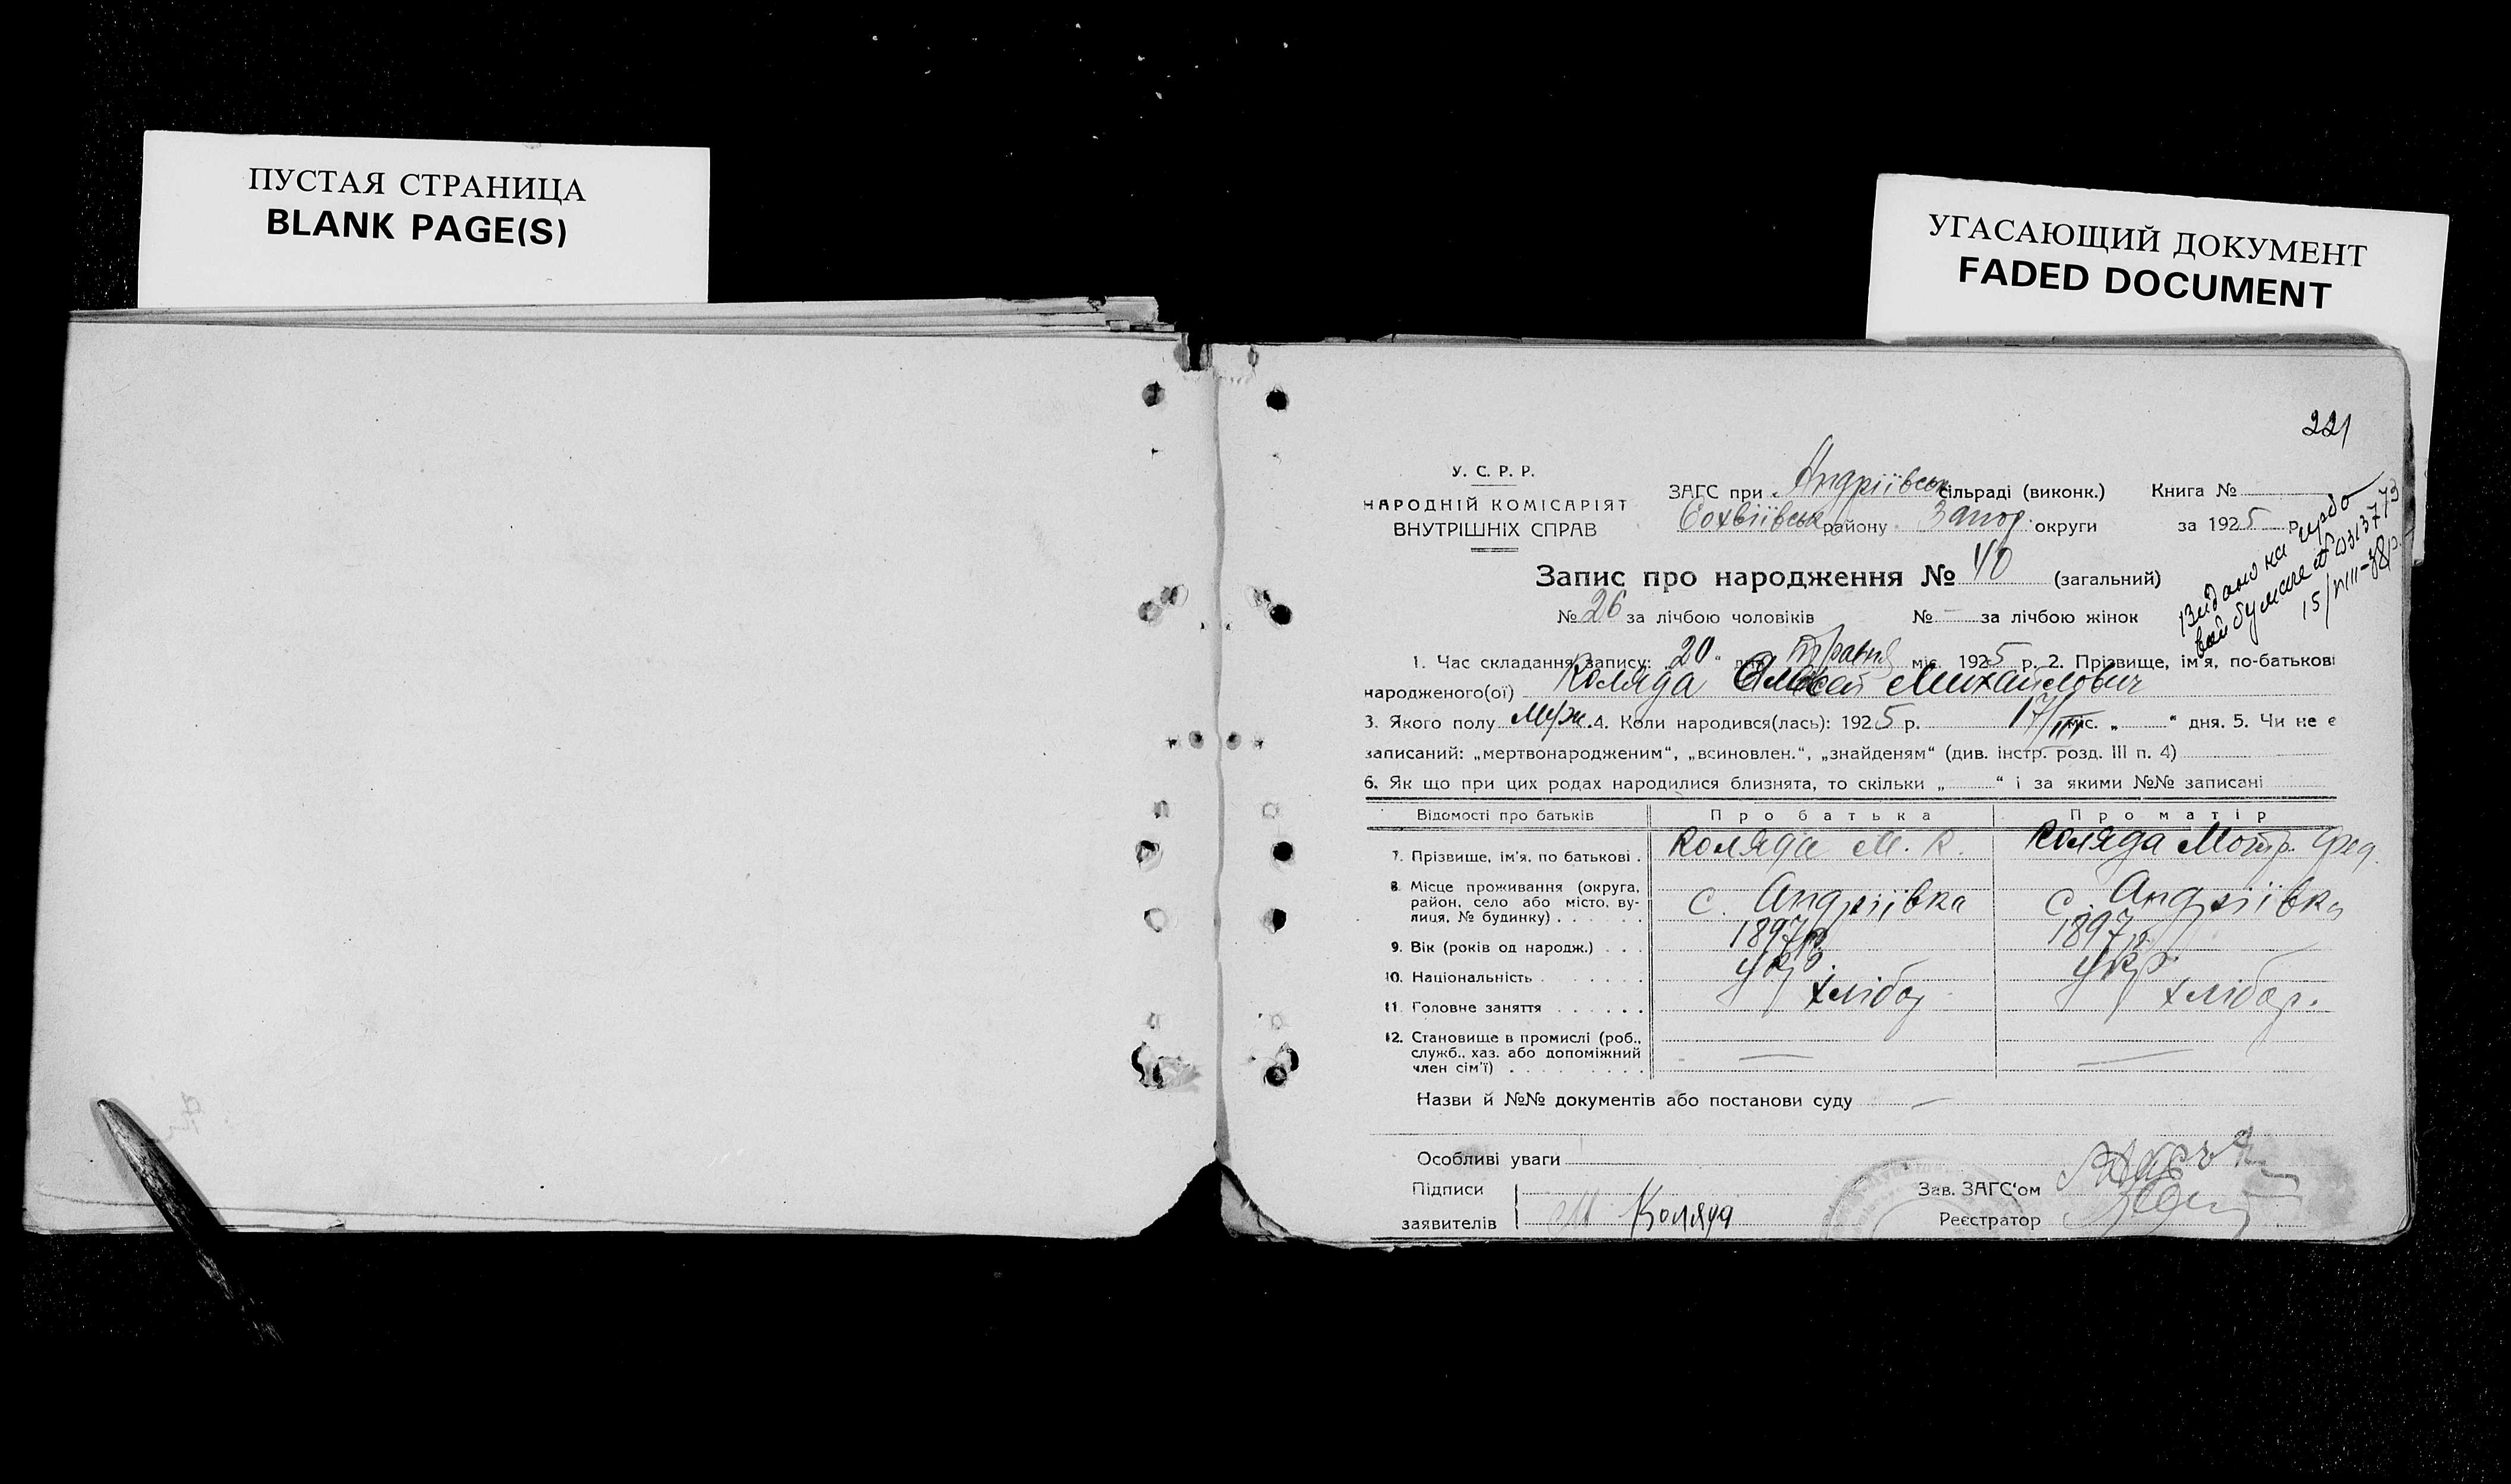 ПУСТАЯ СТРАНИЦА
BLANK PAGE(S)
УГАСАЮЩИЙ ДОКУМЕНТ
FADED DOCUMENT
221
У. С. Р. Р.
НАРОДНІЙ КОМІСАРІЯТ
ВНУТРІШНІХ СПРАВ
ЗАГС при Андріївськ сільраді (виконк.) Книга №
району Запор. округи за 1925 р.
Запис про народження № 40 (загальний)
№ 26 за лічбою чоловіків № — за лічбою жінок
Видано на гербо
вой бумаге № 0313773
15/VIII-38р.
1. Час складання запису: „20“ дня травня міс. 1925 р. 2. Прізвище, ім'я, по-батькові
народженого(ої) Коляда Михайлович
3. Якого полу Муж. 4. Коли народився(лась): 1925 р. 17/ міс. „ “ дня. 5. Чи не є
записаний: „мертвонародженим“, „всиновлен.“, „знайденям“ (див. інстр. розд. III п. 4)
6. Як що при цих родах народилися близнята, то скільки „ “ і за якими №№ записані
Відомості про батьків Про батька Про матір
7. Прізвище, ім'я, по батькові . Коляда М. К. Коляда Мотр. Фед.
8. Місце проживання (округа, район, село або місто, вулиця, № будинку) . . . . . . с. Андріївка с. Андріївка
9. Вік (років од народж.) . . . 1897р. 1897р.
10. Національність . . . . . . . укр. укр.
11. Головне заняття . . . . . . хлібор хлібор.
12. Становище в промислі (роб., служб., хаз. або допоміжний член сім'ї) . . . . . . . . . — —
Назви й №№ документів або постанови суду —
Особливі уваги
Підписи Зав. ЗАГС'ом
заявителів М Коляда Реєстратор